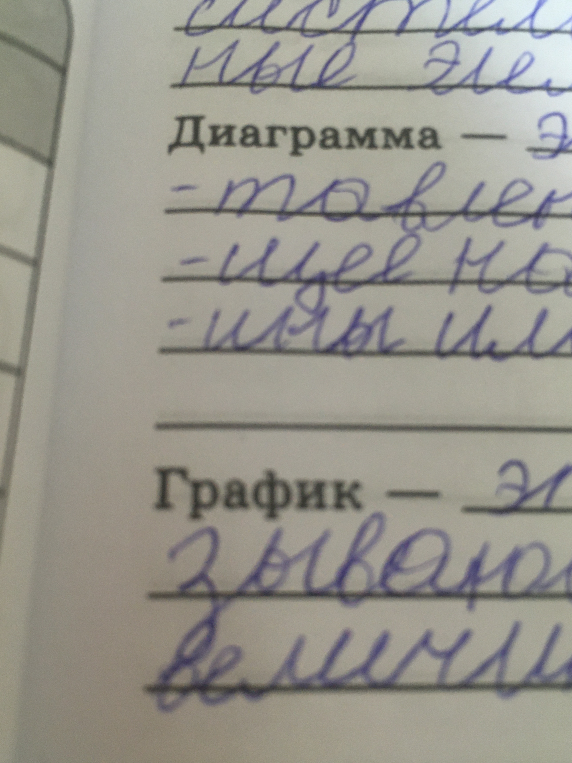 систем
ные эле
Диаграмма — э
-тавлен
-щее на
-ины или
График — эт
зываю
величи